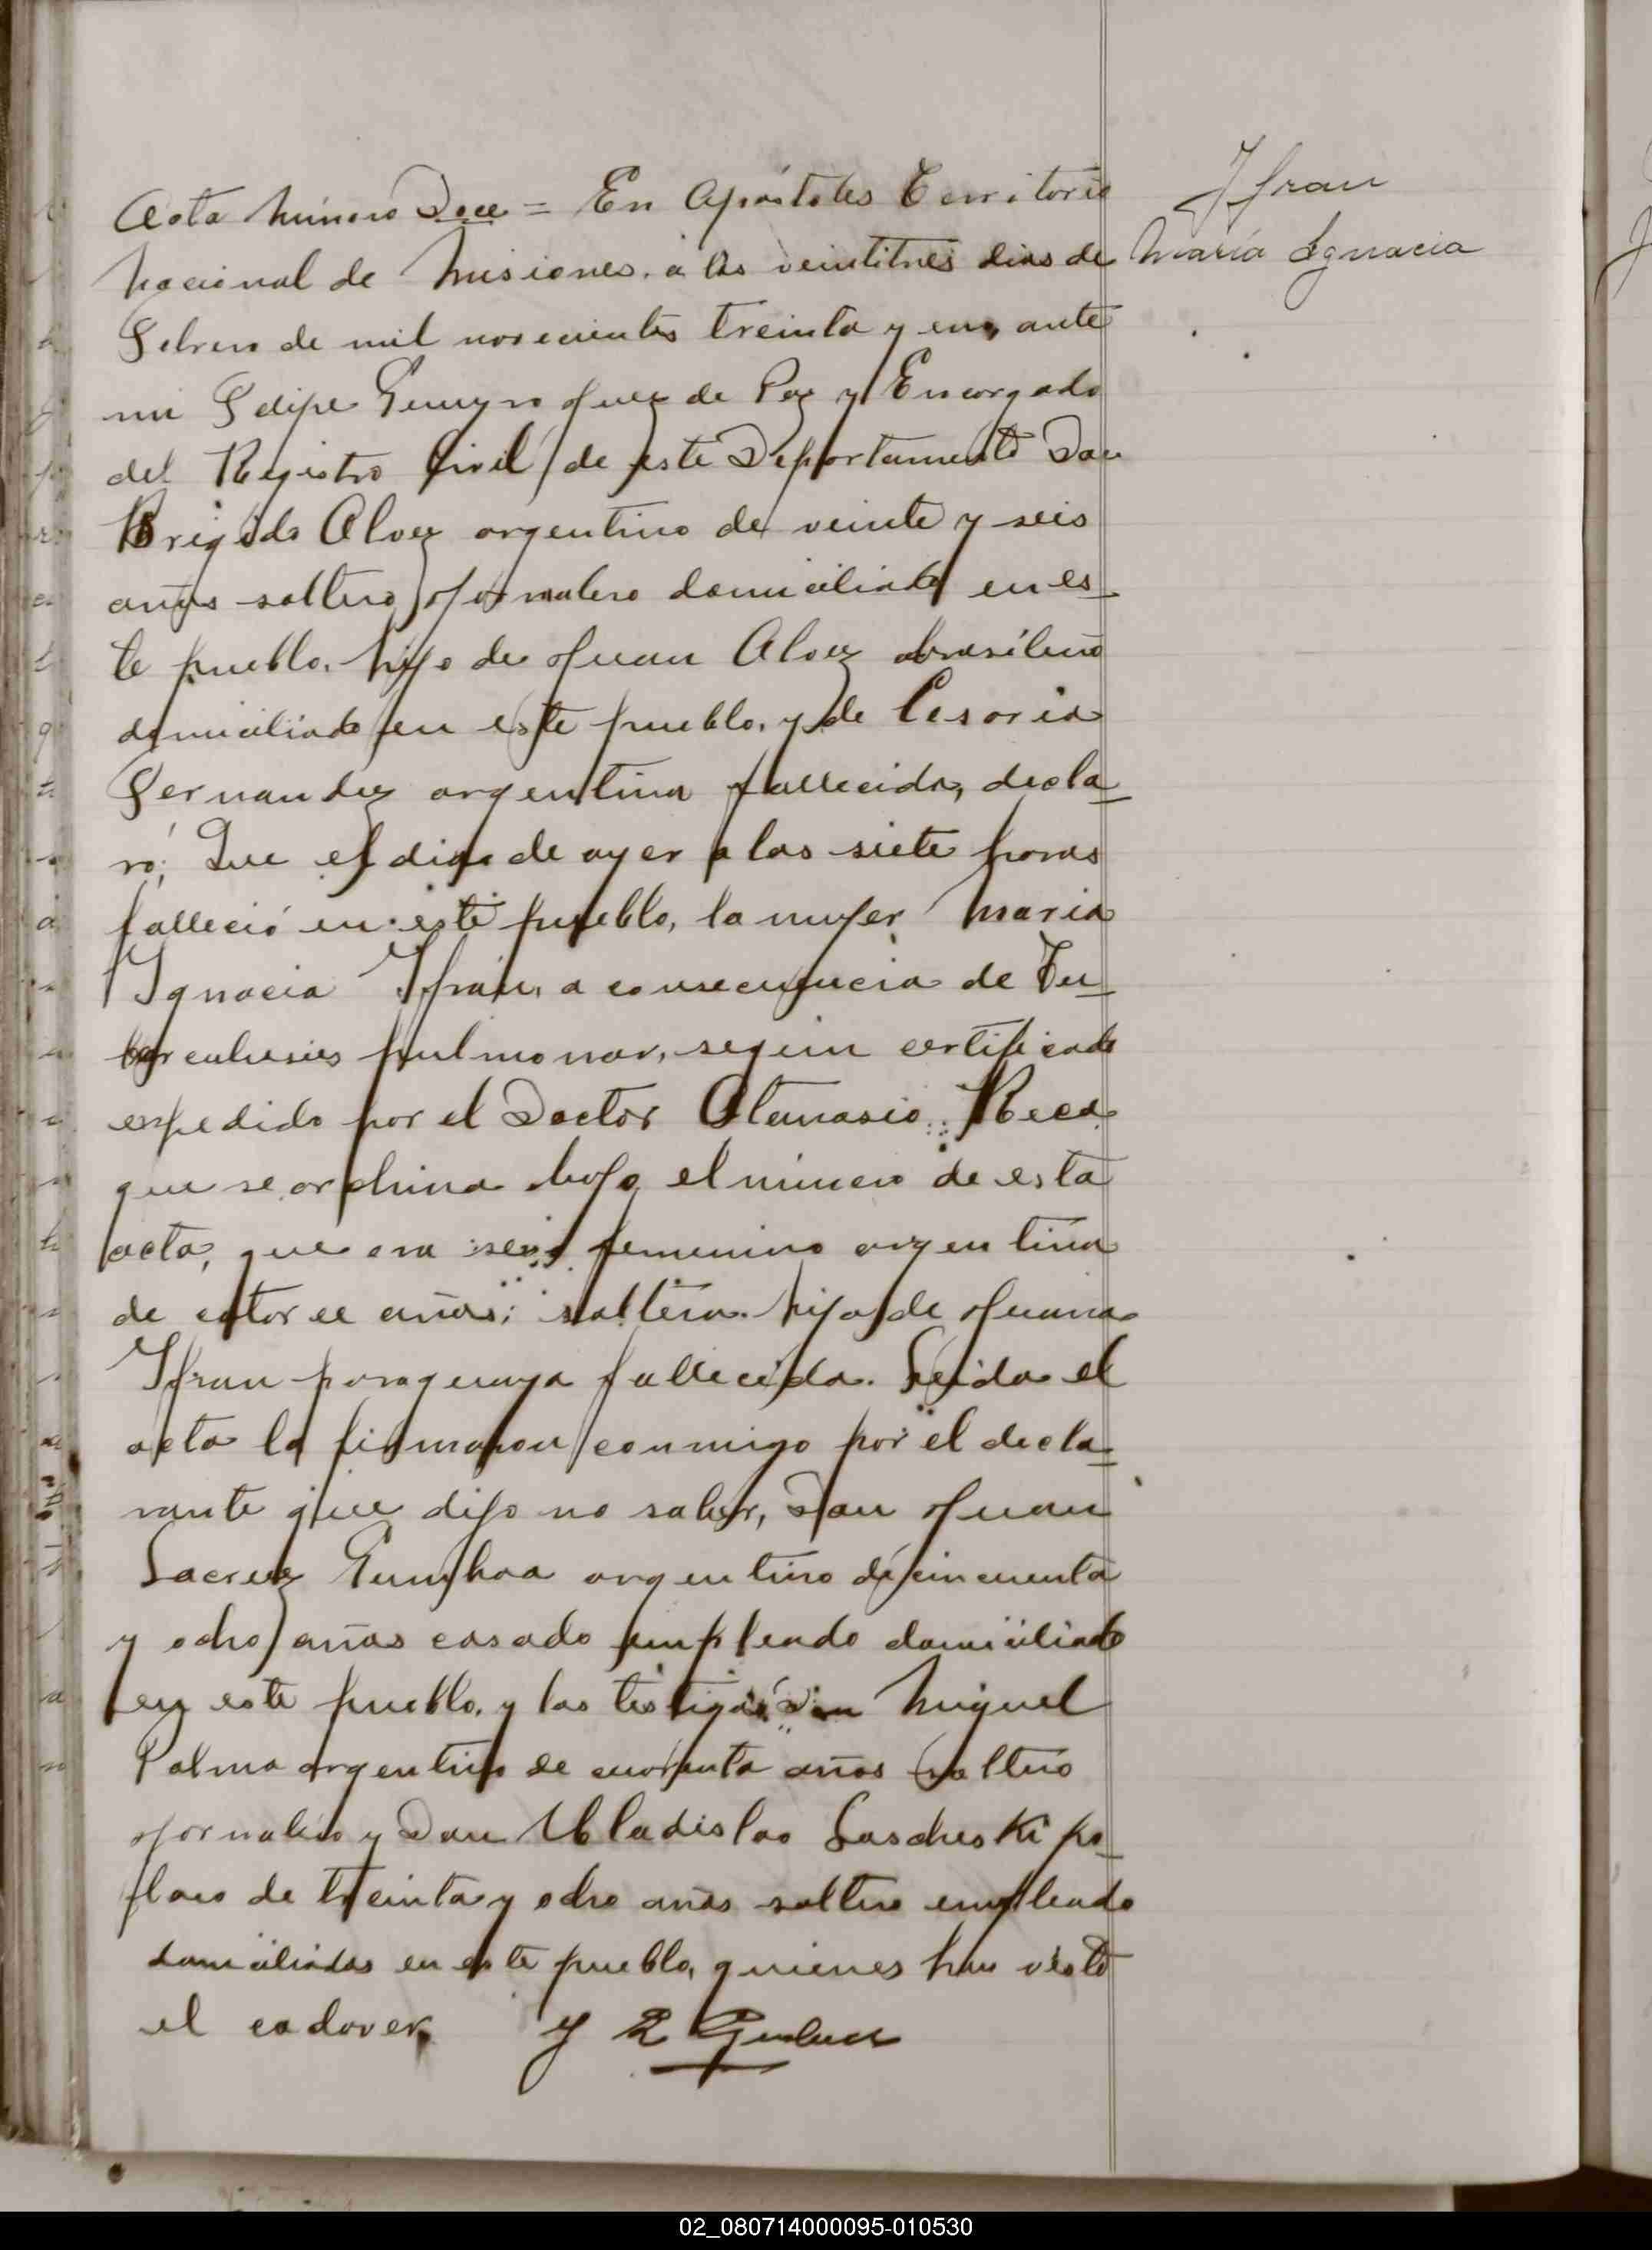 Acta número Doce = En Apóstoles Territorio
Nacional de Misiones, a los veintitrés dias de
Febrero de mil novecientos treinta y uno, ante
mi Felipe Juez de Paz y Encargado
del Registro Civil de este Departamento Don
Brigido Alvez argentino de veinte y seis
años soltero jornalero domiciliado en es-
te pueblo, hijo de Juan Alvez brasileño
domiciliado en este pueblo, y de Cesaria
Fernandez argentina fallecida, decla-
ró; Que el dia de ayer a las siete horas
falleció en este pueblo, la mujer Maria
Ignacia Ifrán, a consecuencia de Tu-
berculosis pulmonar, según certificado
expedido por el Doctor Atanasio Reca
que se archiva bajo el número de esta
acta, que era sexo femenino argentina
de catorce años; soltera. hija de Juana
Ifran paraguaya fallecida. Leida el
acta la firmaron conmigo por el decla-
rante que dijo no saber, Don Juan
Lacruz argentino de cincuenta
y ocho años casado empleado domiciliado
en este pueblo, y los testigos Don Miguel
Palma argentino de cuarenta años soltero
jornalero y Don Uladislao Lascheski po-
laco de treinta y ocho años soltero empleado
domiciliados en este pueblo, quienes han visto
el cadaver
Ifran
María Ignacia
02_080714000095-010530